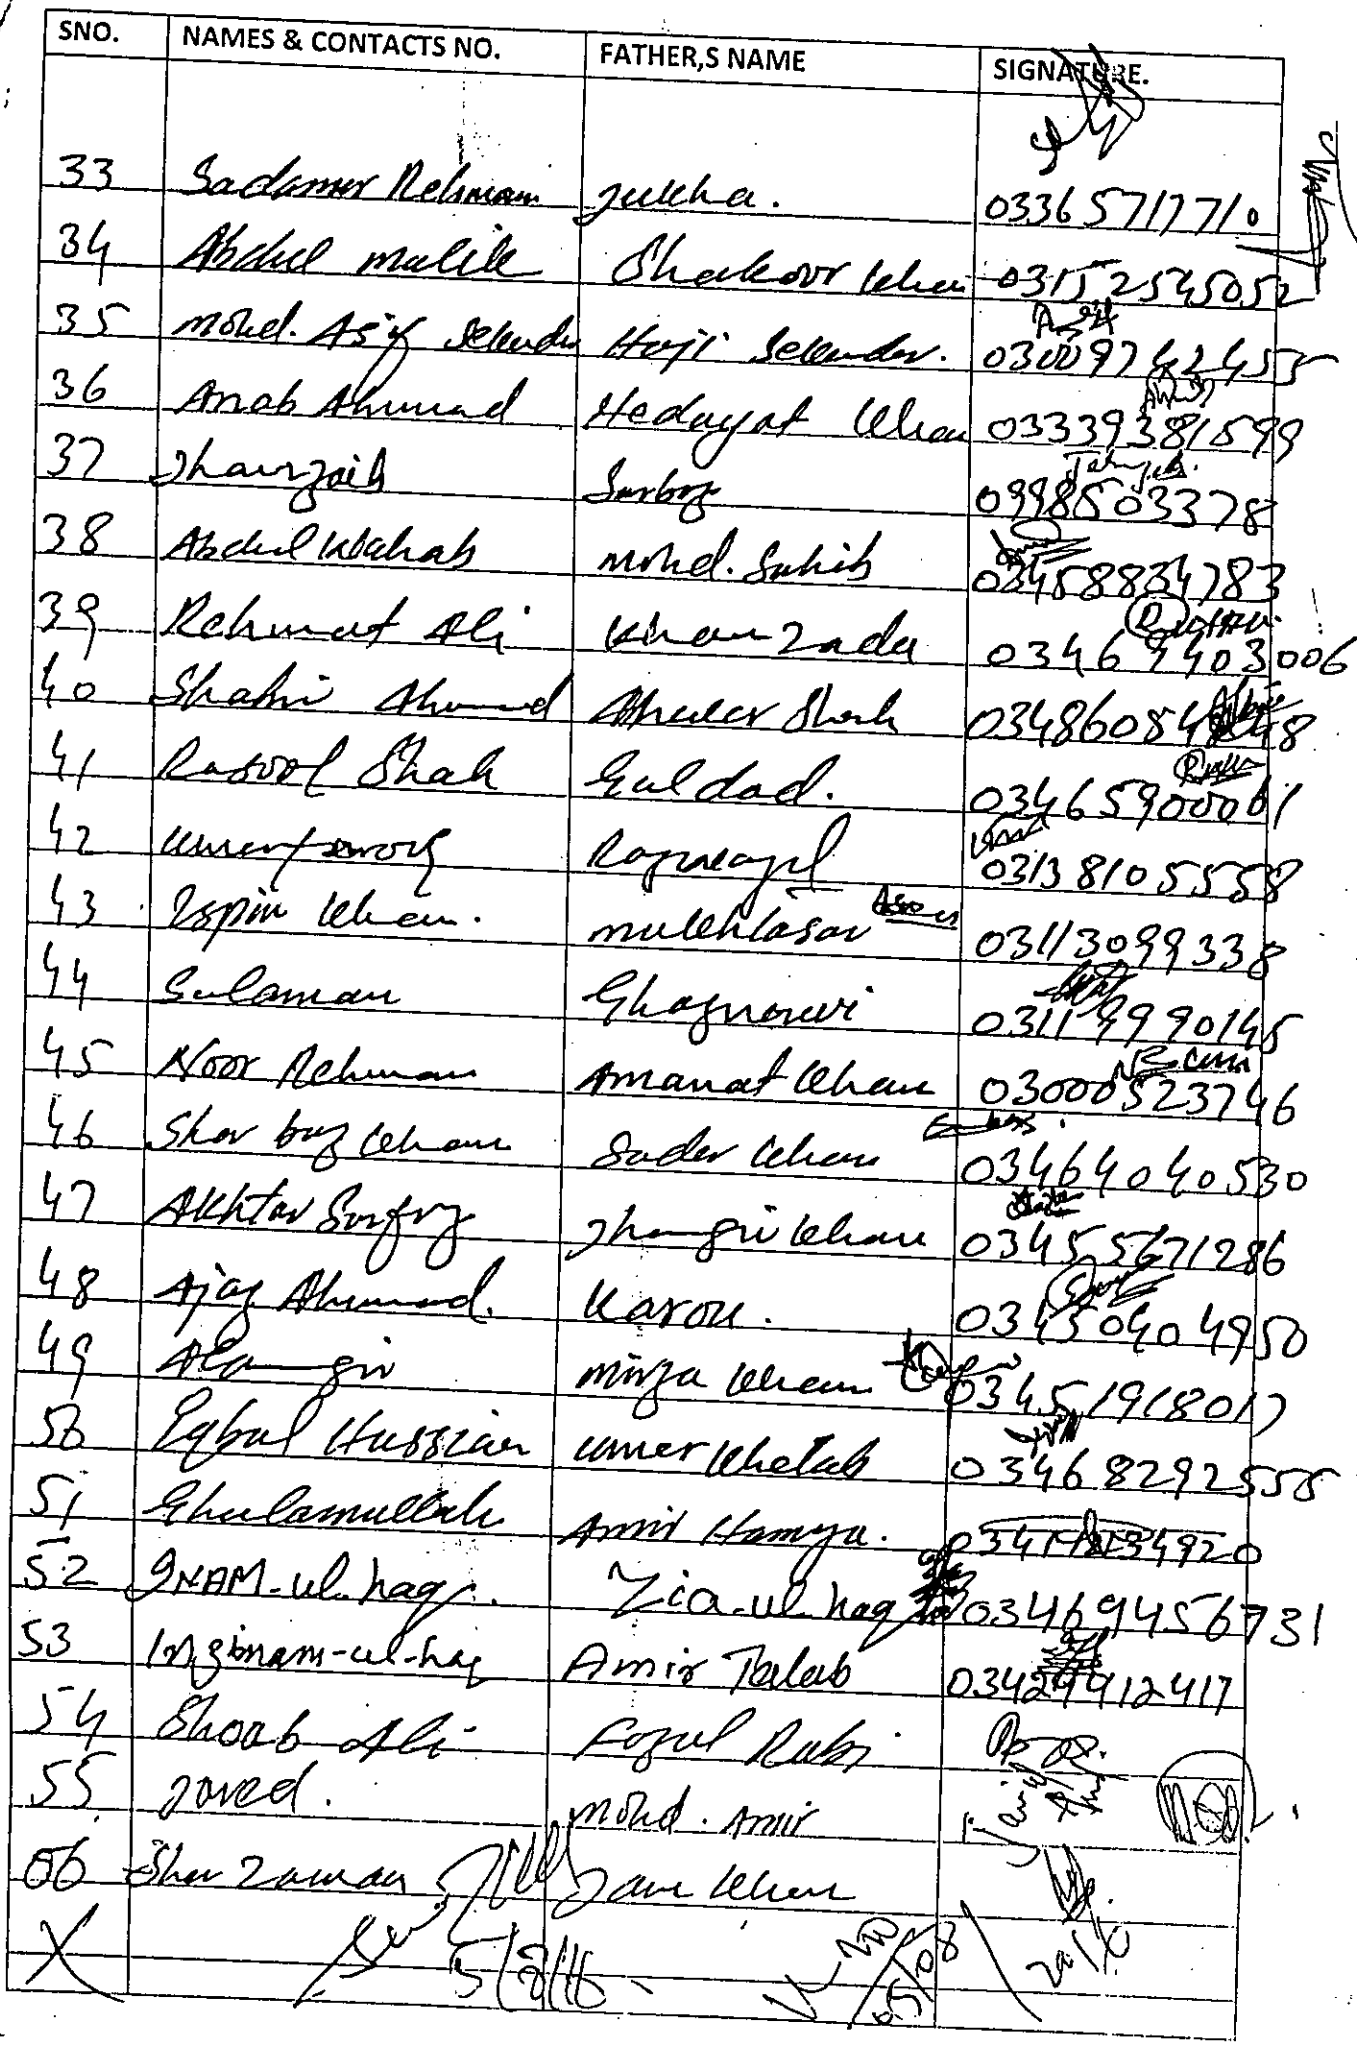 SNO. NAMES & CONTACTS NO. FATHER,S NAME SIGNATURE.
33 Sadamur Rehman Julkha. 03365717710
34 Abdul Malik Shakoor Khan 03152545052
35 Mohd. Asif Sekunder Haji Sekunder. 03009742453
36 Arab Ahmad Hedayat Khan 03339381599
37 Jhanzaib Sarbaz 09985033378
38 Abdul Wahab Mohd. Sahib 03458834783
39 Rehmat Ali Khan Zada 03469403006
40 Shahi Ahmad Shah
41 Rasool Shah Guldad. 03465900061
42 Umer Farooq 03138105558
43 Ispin Khan. Mukhtasar 03113099338
44 Sulaman Ghaznawi 03119990145
45 Noor Rehman Amanat Khan 03000523746
46 Sher baz Khan Sader Khan 03464040530
47 Akhtar Sarfraz Jhangir Khan 03455671286
48 Ajaz Ahmad. Karou. 03450404950
49 Alamgir Mirza Khan 03451918017
50 Iqbal Hussian Umer Khetab 03468292555
51 Ghulamullah Amir Hamza.
52 INAM-ul-haq. Zia-ul-haq 03469456731
53 Inzimam-ul-haq Amir Talab 03429912417
54 Shoab Ali Fazul Rabi
55 Javed. Mohd. Amir
56 Sher Zaman Jan Khan
5/8/16
05/08/2016